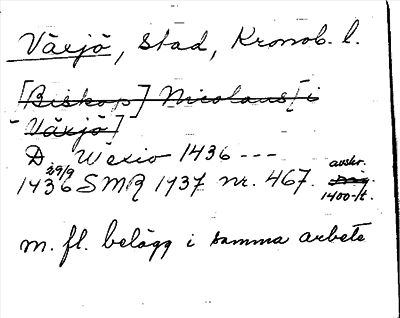 Växjö, Stad, Kronob. l.
[Biskop] Nicolaus [i
Växjö]
D. Wexio 1436 ---
29/9 avskr.
1436 SMR 1937 nr. 467. orig.
1400-t.
m. fl. belägg i samma arbete